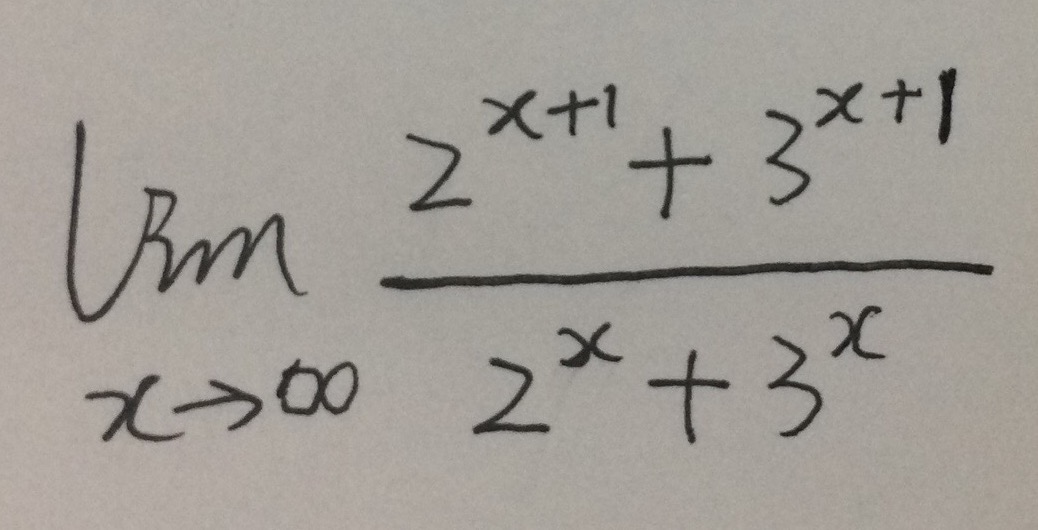 lim x→∞ (2^(x+1) + 3^(x+1)) / (2^x + 3^x)